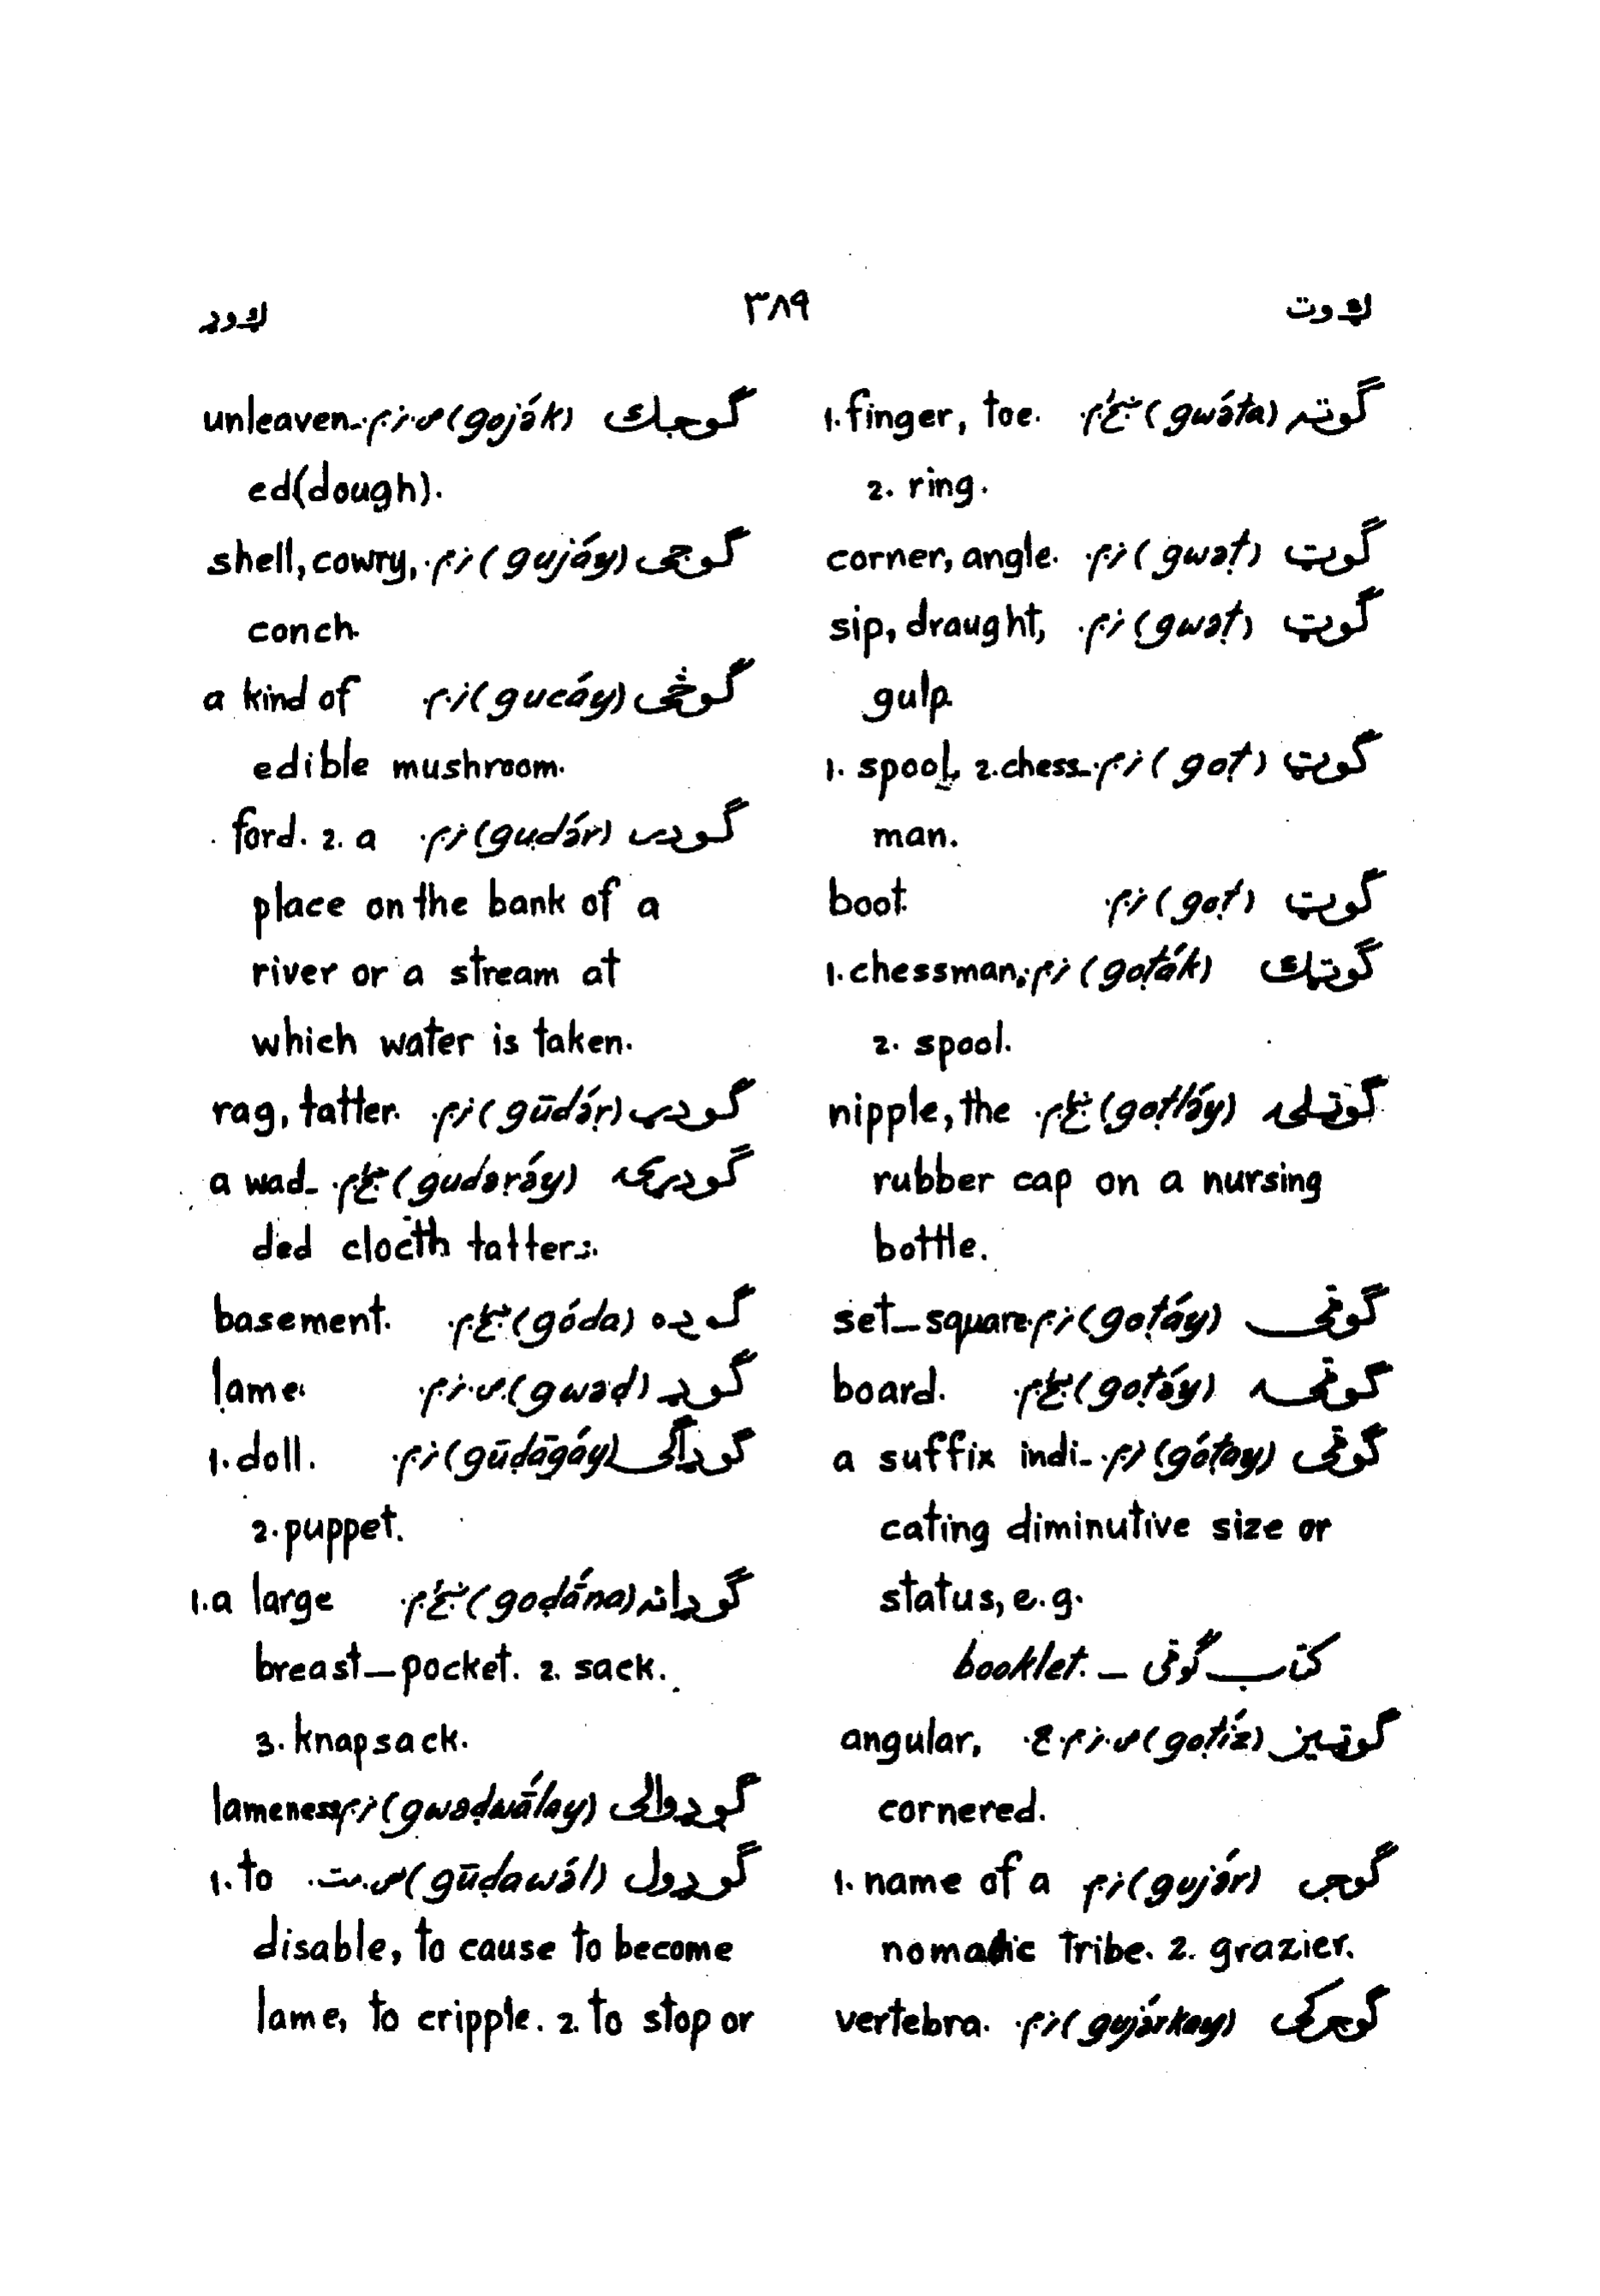 ګوت
۳۸۹
ګوډ
ګوته (gwə́ta) 1. finger, toe.
2. ring.
ګوټ (gwəṭ) corner, angle.
ګوټ (gwəṭ) sip, draught,
gulp.
ګوټ (goṭ) 1. spool, 2. chess-
man.
ګوټ (goṭ) boot.
ګوټک (goṭák) 1. chessman;
2. spool.
ګوټلۍ (goṭláy) nipple, the
rubber cap on a nursing
bottle.
ګوټی (goṭáy) set-square.
ګوټۍ (goṭə́y) board.
ګوټی (góṭay) a suffix indi-
cating diminutive size or
status, e.g.
کتاب ګوټی - booklet.
ګوټیز (goṭíz) angular,
cornered.
ګوجر (gujár) 1. name of a
nomadic Tribe. 2. grazier.
ګوجرکی (gujárkay) vertebra.
ګوجک (goják) unleaven-
ed (dough).
ګوجی (gujáy) shell, cowry,
conch.
ګوڅی (gucáy) a kind of
edible mushroom.
ګودر (gudár) ford. 2. a
place on the bank of a
river or a stream at
which water is taken.
ګودړ (gūdáṛ) rag, tatter.
ګودړۍ (gudaṛə́y) a wad-
ded clocth tatters.
ګوده (góda) basement.
ګوډ (gwəḍ) lame.
ګوډاګی (gūḍāgáy) 1. doll.
2. puppet.
ګوډانه (goḍā́na) 1. a large
breast-pocket. 2. sack.
3. knapsack.
ګوډوالی (gwəḍwā́lay) lameness
ګوډول (gūḍawə́l) 1. to
disable, to cause to become
lame, to cripple. 2. to stop or